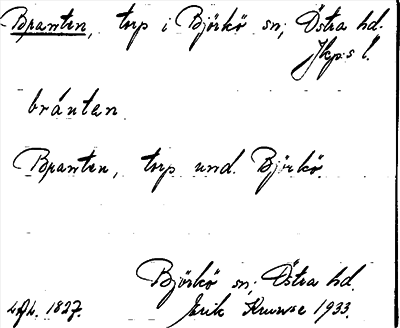 Branten, torp i Björkö sn, Östra hd.
Jkp:s l.
brántan
Branten, torp und. Björkö.
Björkö sn, Östra hd.
1827. Erik Kruuse 1933.